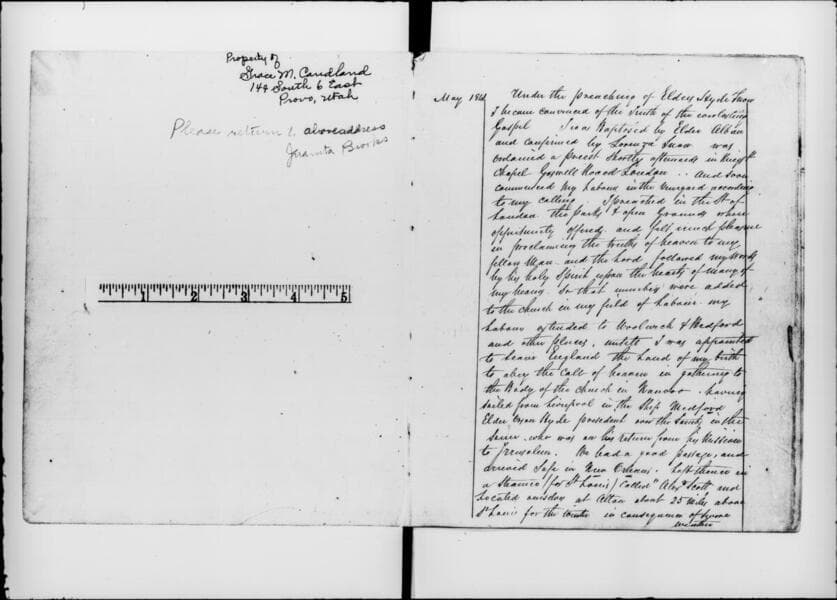 Property of
Grace M. Candland
144 South 6 East
Provo, Utah
Please return to above address
Juanita Brooks
1 2 3 4 5
May 1841
Under the preaching of Elder Hyde Snow
I became convinced of the Truth of the everlasting
Gospel I was Baptised by Elder Alban
and confirmed by Lorenzo Snow was
ordained a priest shortly afterwards in
Chapel Goswell Road London .. And soon
commenced my labour in the vineyard according
to my calling I preached in the St of
London the Parks & open Grounds where
oppertunity offered and felt much pleasure
in proclaiming the truths of heaven to my
fellow Man and the Lord folowed my words
by his holy Spirit upon the hearts of many of
my hearing So that numbers were added
to the church in my field of Labour my
Labour extended to Woolwich & Bedford
and other places, untill I was appointed
to leave England the Land of my birth
to obey the Call of heaven in gathering to
the Body of the Church in Nauvoo . having
sailed from Liverpool in the Ship Medford
Elder Orson Hyde president over the Saints in the
same who was on his return from his Mission
to Jerusalem. We had a good passage, and
arrived Safe in New Orleans. Left thence in
a Steamer (for St Louis) Called "Alexr Scott and
Located ourselves at Alton about 25 Miles above
St Louis for the winter in consequence of some